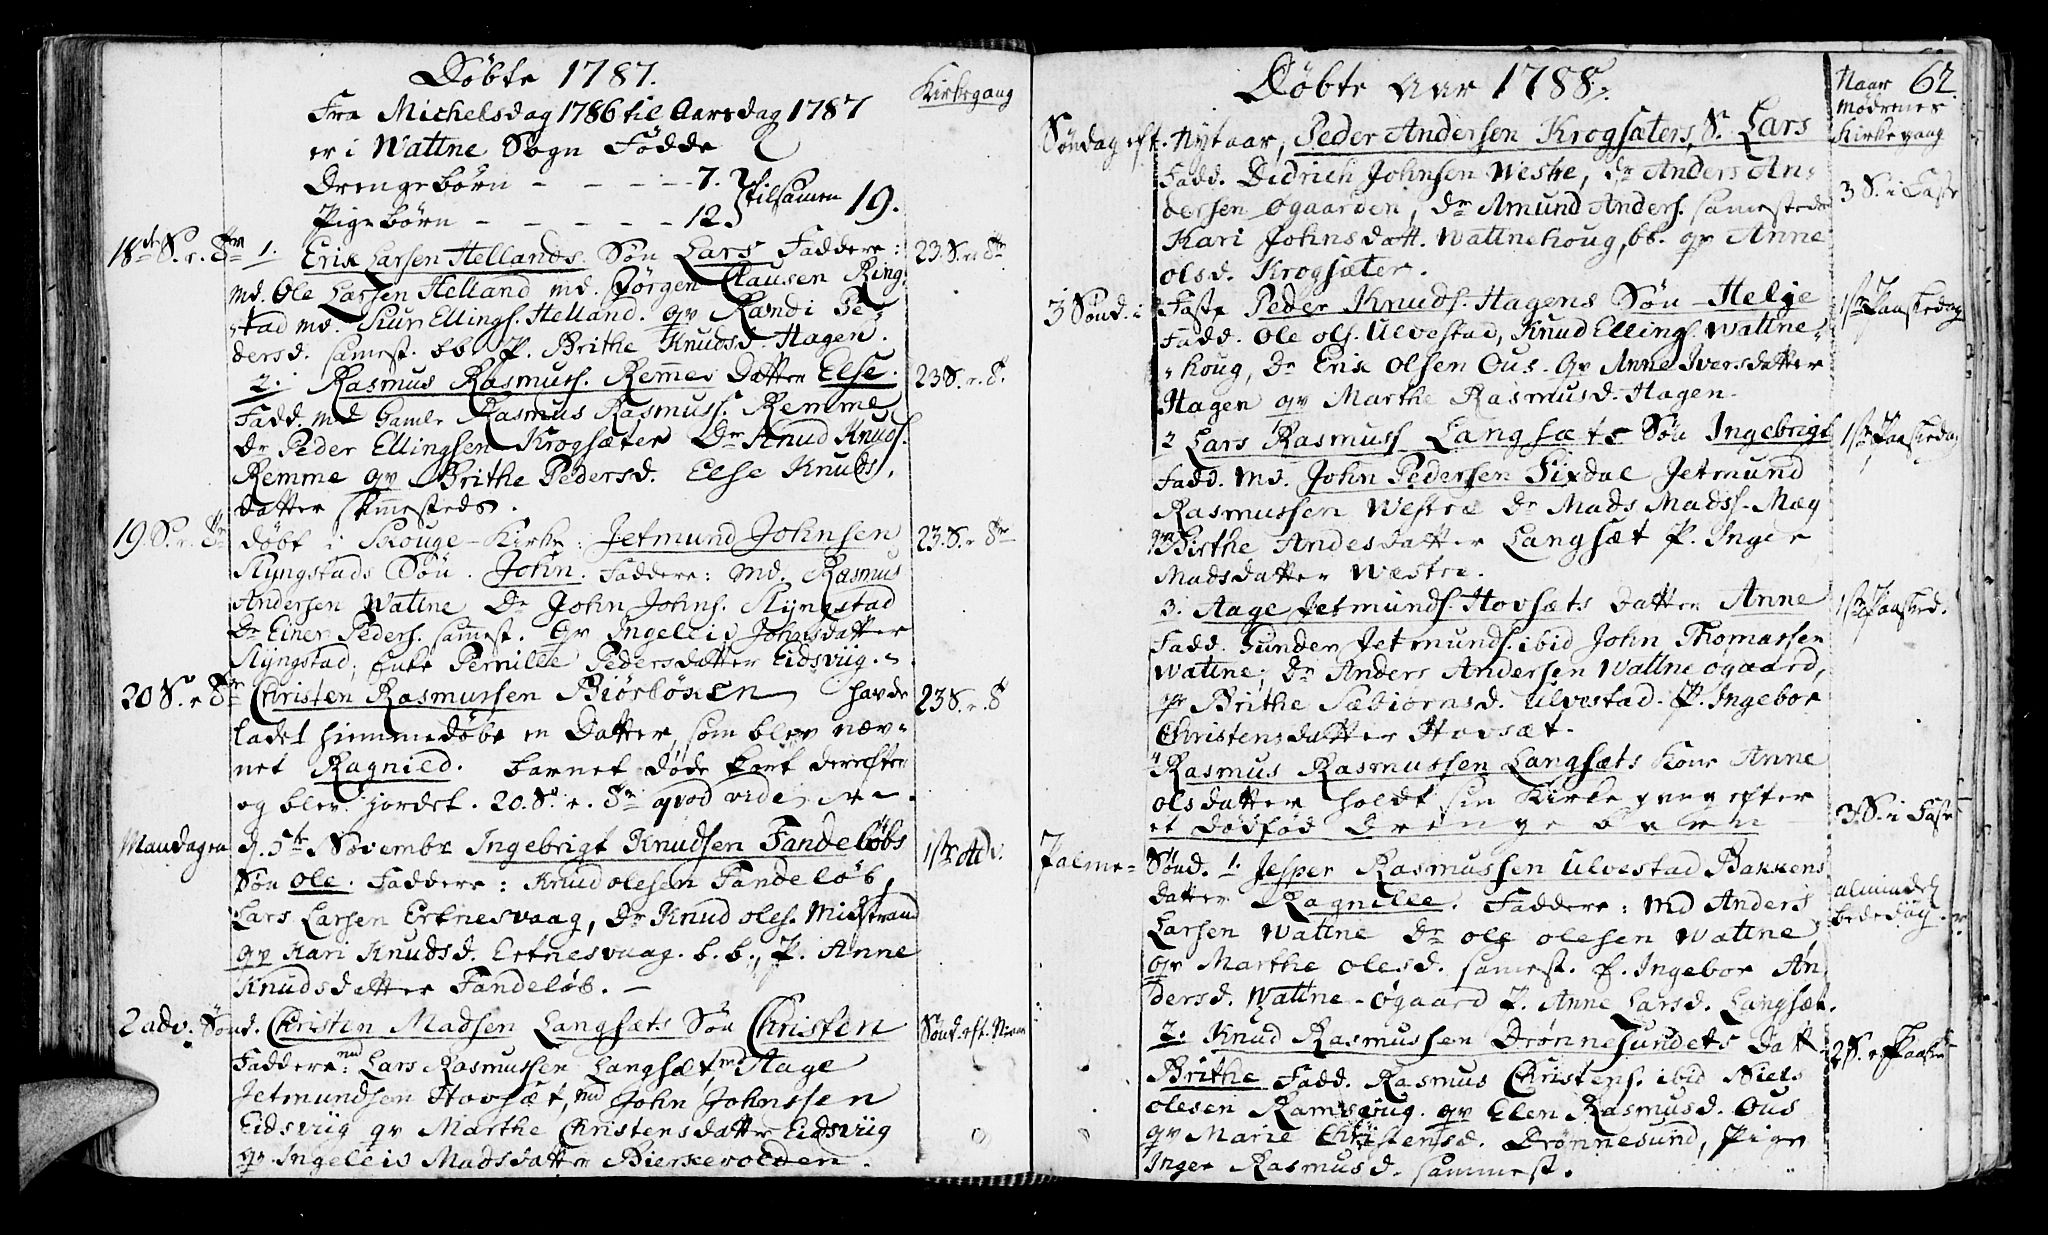 Döbte 1787.
Kirkegang
Fra Michelsdag 1786 til Aarsdag 1787
er i Wattne Sogn Fødde
Drengebørn - - - - - 7.
Pigebørn - - - - - - 12
tilsamen 19.
18de S. e. 3tn 1. Erik Larsen Hellands Søn Lars Faddere: 23. S. e. 3tn
md. Ole Larsen Helland md. Jørgen Clausen Ring-
stad md. Siur Ellings. Helland. qv Randi Pe-
dersd. samest. bb P. Brithe Knudsd Hagen.
2. Rasmus Rasmuss. Remes Datter Else. 23 S. e. 3.
Fadd. md Gamle Rasmus Rasmuss. Remme
Dr Peder Ellingsen Krogsæter Dr Knud Knuds.
Remme qv Brithe Pedersd. Else Knuds-
datter sammesteds.
19. S. e. 3tn döbt i Skouge-Kirke: Jetmund Johnsen 23. S. e 3tn
Slyngstads Søn. John. Faddere: md. Rasmus
Andersen Wattne Dr John Johns. Slyngstad
Dr Einer Peders. samest. qv Ingeleis Johnsdatter
Slyngstad; Enke Pernille Pedersdatter Eidsviig.
20 S. e 3tn Christen Rasmussen Biørlöken havde 23 S. e. 3
ladet hiemmedøbe en Datter, som blev næv-
net Ragnild. barnet døde kort derefter
og blev jordet. 20. S. e. 3tn qvod vide
Mandagen d. 5te Novembr Ingebrigt Knudsen Fandeløbs 1ste Adv.
Søn Ole. Faddere: Knud olesen Fandeløb,
Lars Larsen Erknesvaag, Dr Knud oles. Midstrand
qv Kari Knudsd. Erknesvaag. b. b. P. Anne
Knudsdatter Fandeløb. -
2 adv. Sønd. Christen Madsen Langsæts Søn Christen Sønd. eft. Nyaar
Faddere: md Lars Rasmussen Langsæt, md Aage
Jetmundsen Hovsæt, md John Johnssen
Eidsviig qv Marthe Christensdatter Eidsviig
qv. Ingeleis Madsdatter Bierkevolden.
Döbte Aar 1788.
Naar Mødrenes Kirkegang
62
Søndag eft. Nytaar, Peder Andersen Krogsæters, S. Lars
Fadd. Didrich Johnsen Westre, Dr Anders An- 3 S. i Faste
dersen ogaarden, Dr Amund Anders. samesteds
Kari Johnsdatt. Wattnehoug, bb. qv Anne
olsd. Krogsæter.
3 Sønd. i Faste Peder Knuds. Hagens Søn Helge 1ste Paaskedag
Fadd. Ole ols. Ulvestad, Knud Ellings. Wattne-
houg, Dr Erik Olsen Ous. qv Anne Iversdatter
Hagen qv Marthe Rasmusd. Hagen.
2 Lars Rasmuss. Langsæts Søn Ingebrigt 1ste Paaskedag
Fadd. md. John Pedersen Fixdal Jetmund
Rasmussen Westre Dr Mads Madss. Mæg
qv Birthe Andesdatter Langsæt P. Inger
Madsdatter Westre.
3. Aage Jetmunds. Hovsæts Datter Anne 1ste Paasked.
Fadd. Gunder Jetmunds. ibid John Thomassen
Wattne; Dr Anders Andersen Wattne ogaard,
qv Brithe Sæbiørnsd. Ulvestad. P. Ingebor
Christensdatter Hovsæt.
Rasmus Rasmussen Langsæts Kone Anne
olsdatter holdt sin Kirkegang efter 3 S. i Faste
et dødfød Drengebarn
Palme- Sønd. 1. Jesper Rasmussen Ulvestad Bakkens
Datter Ragnille. Faddere: md Anders almindel. bededag
Larsen Wattne Dr ole olesen Wattne
qv Marthe Olesd. samest. f. Ingebor An-
dersd. Wattne-Øgaard P. Anne Larsd. Langsæt.
2. Knud Rasmussen Drønnesundets Datt 2 S. e. Paaske
Brithe Fadd. Rasmus Christens. ibid Niels
olesen Ramsvug. qv Elen Rasmusd. Ous
qv Marie Christensd. Drønnesund, Pige
Inger Rasmusd. sammest.